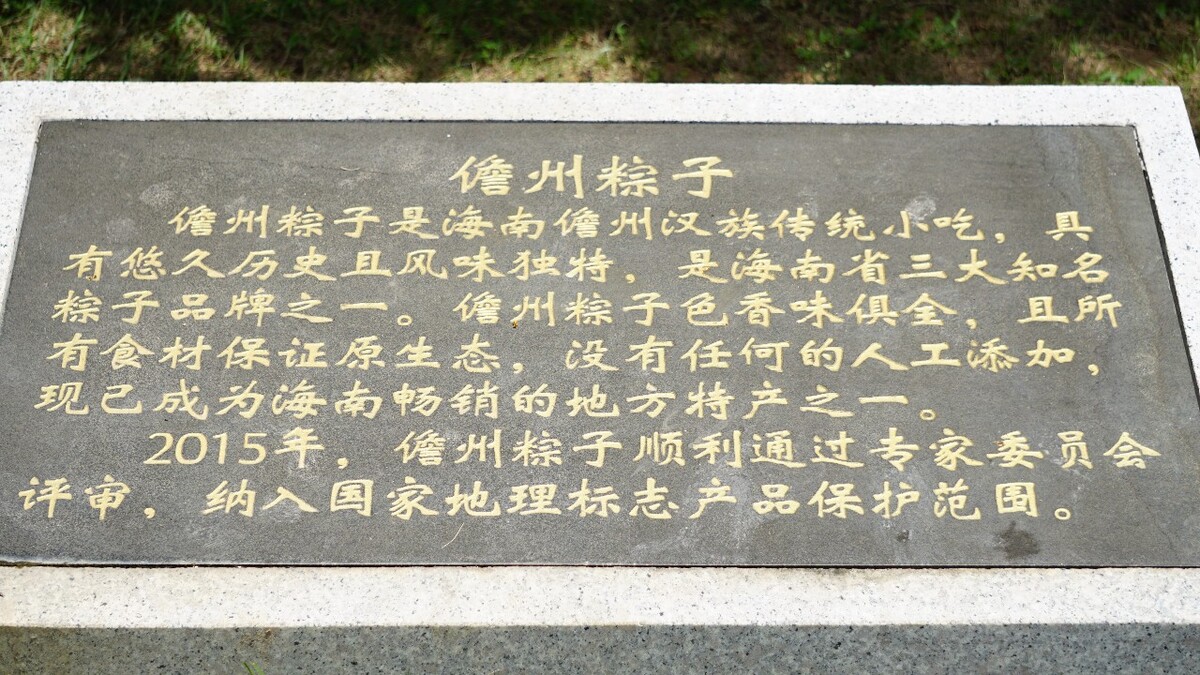 儋州粽子
儋州粽子是海南儋州汉族传统小吃，具
有悠久历史且风味独特，是海南省三大知名
粽子品牌之一。儋州粽子色香味俱全，且所
有食材保证原生态，没有任何的人工添加，
现已成为海南畅销的地方特产之一。
2015年，儋州粽子顺利通过专家委员会
评审，纳入国家地理标志产品保护范围。